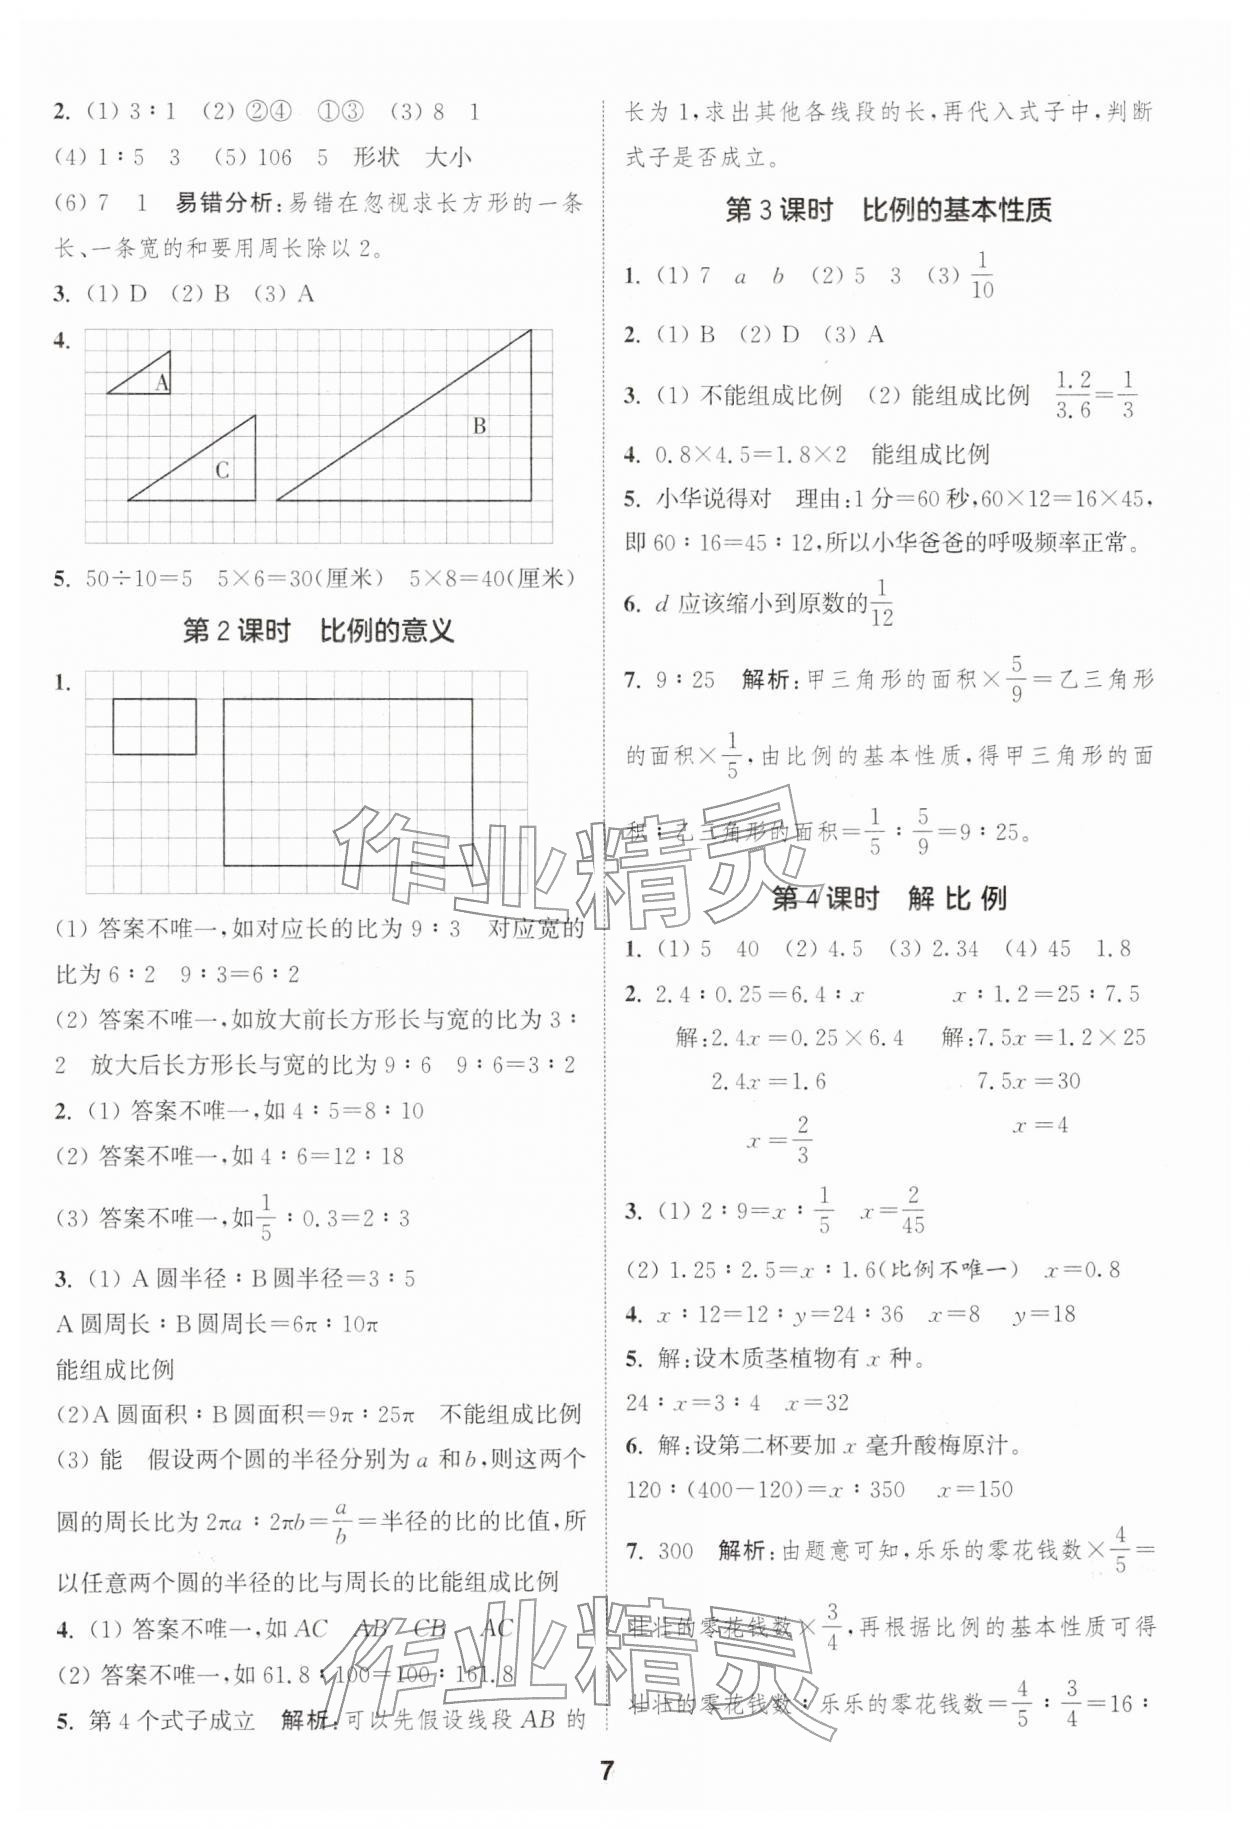 2. (1) 3∶1 (2) ②④ ①③ (3) 8 1
(4) 1∶5 3 (5) 106 5 形状 大小
(6) 7 1 易错分析:易错在忽视求长方形的一条
长、一条宽的和要用周长除以2。
3. (1) D (2) B (3) A
4.
A
B
C
5. 50÷10=5 5×6=30(厘米) 5×8=40(厘米)
第2课时 比例的意义
1.
(1) 答案不唯一,如对应长的比为9∶3 对应宽的
比为6∶2 9∶3=6∶2
(2) 答案不唯一,如放大前长方形长与宽的比为3∶
2 放大后长方形长与宽的比为9∶6 9∶6=3∶2
2. (1) 答案不唯一,如4∶5=8∶10
(2) 答案不唯一,如4∶6=12∶18
(3) 答案不唯一,如1/5∶0.3=2∶3
3. (1) A圆半径∶B圆半径=3∶5
A圆周长∶B圆周长=6π∶10π
能组成比例
(2)A圆面积∶B圆面积=9π∶25π 不能组成比例
(3) 能 假设两个圆的半径分别为a和b,则这两个
圆的周长比为2πa∶2πb=a/b=半径的比的比值,所
以任意两个圆的半径的比与周长的比能组成比例
4. (1) 答案不唯一,如AC AB CB AC
(2) 答案不唯一,如61.8∶100=100∶161.8
5. 第4个式子成立 解析:可以先假设线段AB的
长为1,求出其他各线段的长,再代入式子中,判断
式子是否成立。
第3课时 比例的基本性质
1. (1) 7 a b (2) 5 3 (3) 1/10
2. (1) B (2) D (3) A
3. (1) 不能组成比例 (2) 能组成比例 1.2/3.6=1/3
4. 0.8×4.5=1.8×2 能组成比例
5. 小华说得对 理由:1分=60秒,60×12=16×45,
即60∶16=45∶12,所以小华爸爸的呼吸频率正常。
6. d应该缩小到原数的1/12
7. 9∶25 解析:甲三角形的面积×5/9=乙三角形
的面积×1/5,由比例的基本性质,得甲三角形的面
积∶乙三角形的面积=1/5∶5/9=9∶25。
第4课时 解比例
1. (1) 5 40 (2) 4.5 (3) 2.34 (4) 45 1.8
2. 2.4∶0.25=6.4∶x x∶1.2=25∶7.5
解:2.4x=0.25×6.4 解:7.5x=1.2×25
2.4x=1.6 7.5x=30
x=2/3 x=4
3. (1) 2∶9=x∶1/5 x=2/45
(2) 1.25∶2.5=x∶1.6(比例不唯一) x=0.8
4. x∶12=12∶y=24∶36 x=8 y=18
5. 解:设木质茎植物有x种。
24∶x=3∶4 x=32
6. 解:设第二杯要加x毫升酸梅原汁。
120∶(400-120)=x∶350 x=150
7. 300 解析:由题意可知,乐乐的零花钱数×4/5=
壮壮的零花钱数×3/4,再根据比例的基本性质可得
壮壮的零花钱数∶乐乐的零花钱数=4/5∶3/4=16∶
7
作业精灵
作业精灵